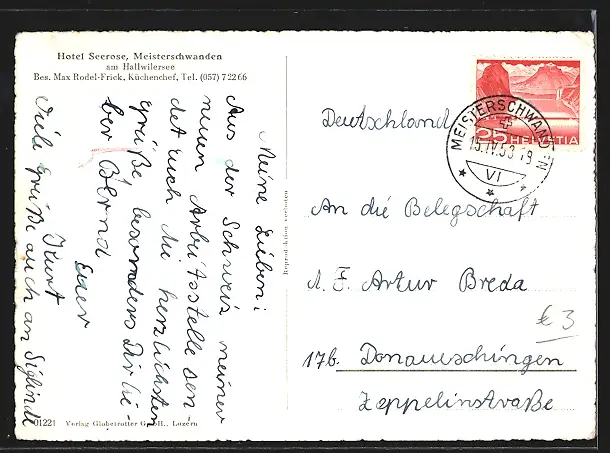 Hotel Seerose, Meisterschwanden
am Hallwilersee
Bes. Max Rodel-Frick, Küchenchef, Tel. (057) 7 22 66
Meine Lieben:
Aus der Schweiz meiner
neuen Arbeitsstelle sen-
det Euch die herzlichsten
Grüße besonders Dir lie-
ber Bernd
Euer
Kurt
Viele Grüße auch an Siglinde
01221 Verlag Globetrotter G.m.b.H., Luzern
Reproduktion verboten
25 HELVETIA
MEISTERSCHWANDEN
15.IV.53.19
VI
Deutschland
An die Belegschaft
d. F. Artur Breda
17b. Donaueschingen
Zeppelinstraße
€ 3